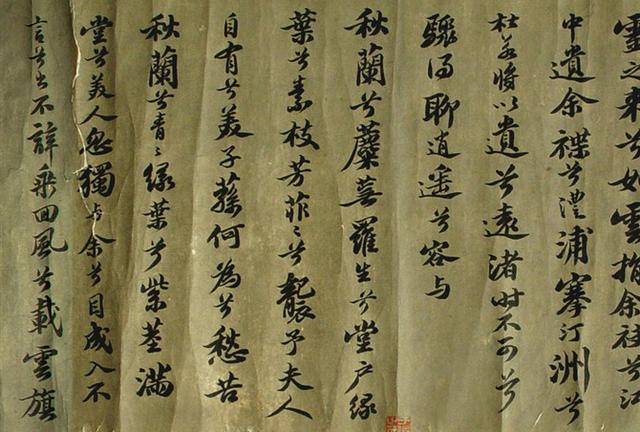 靈之来兮如雲捐余袂兮江
中遺余褋兮澧浦搴汀洲兮
杜若將以遺兮遠渚时不可兮
驟得聊逍遥兮容与
秋蘭兮蘪蕪羅生兮堂户緑
葉兮素枝芳菲〻兮襲予夫人
自有兮美子蓀何為兮愁苦
秋蘭兮青〻緑葉兮紫莖滿
堂兮美人忽獨与余兮目成入不
言兮出不辭乘回風兮載雲旗